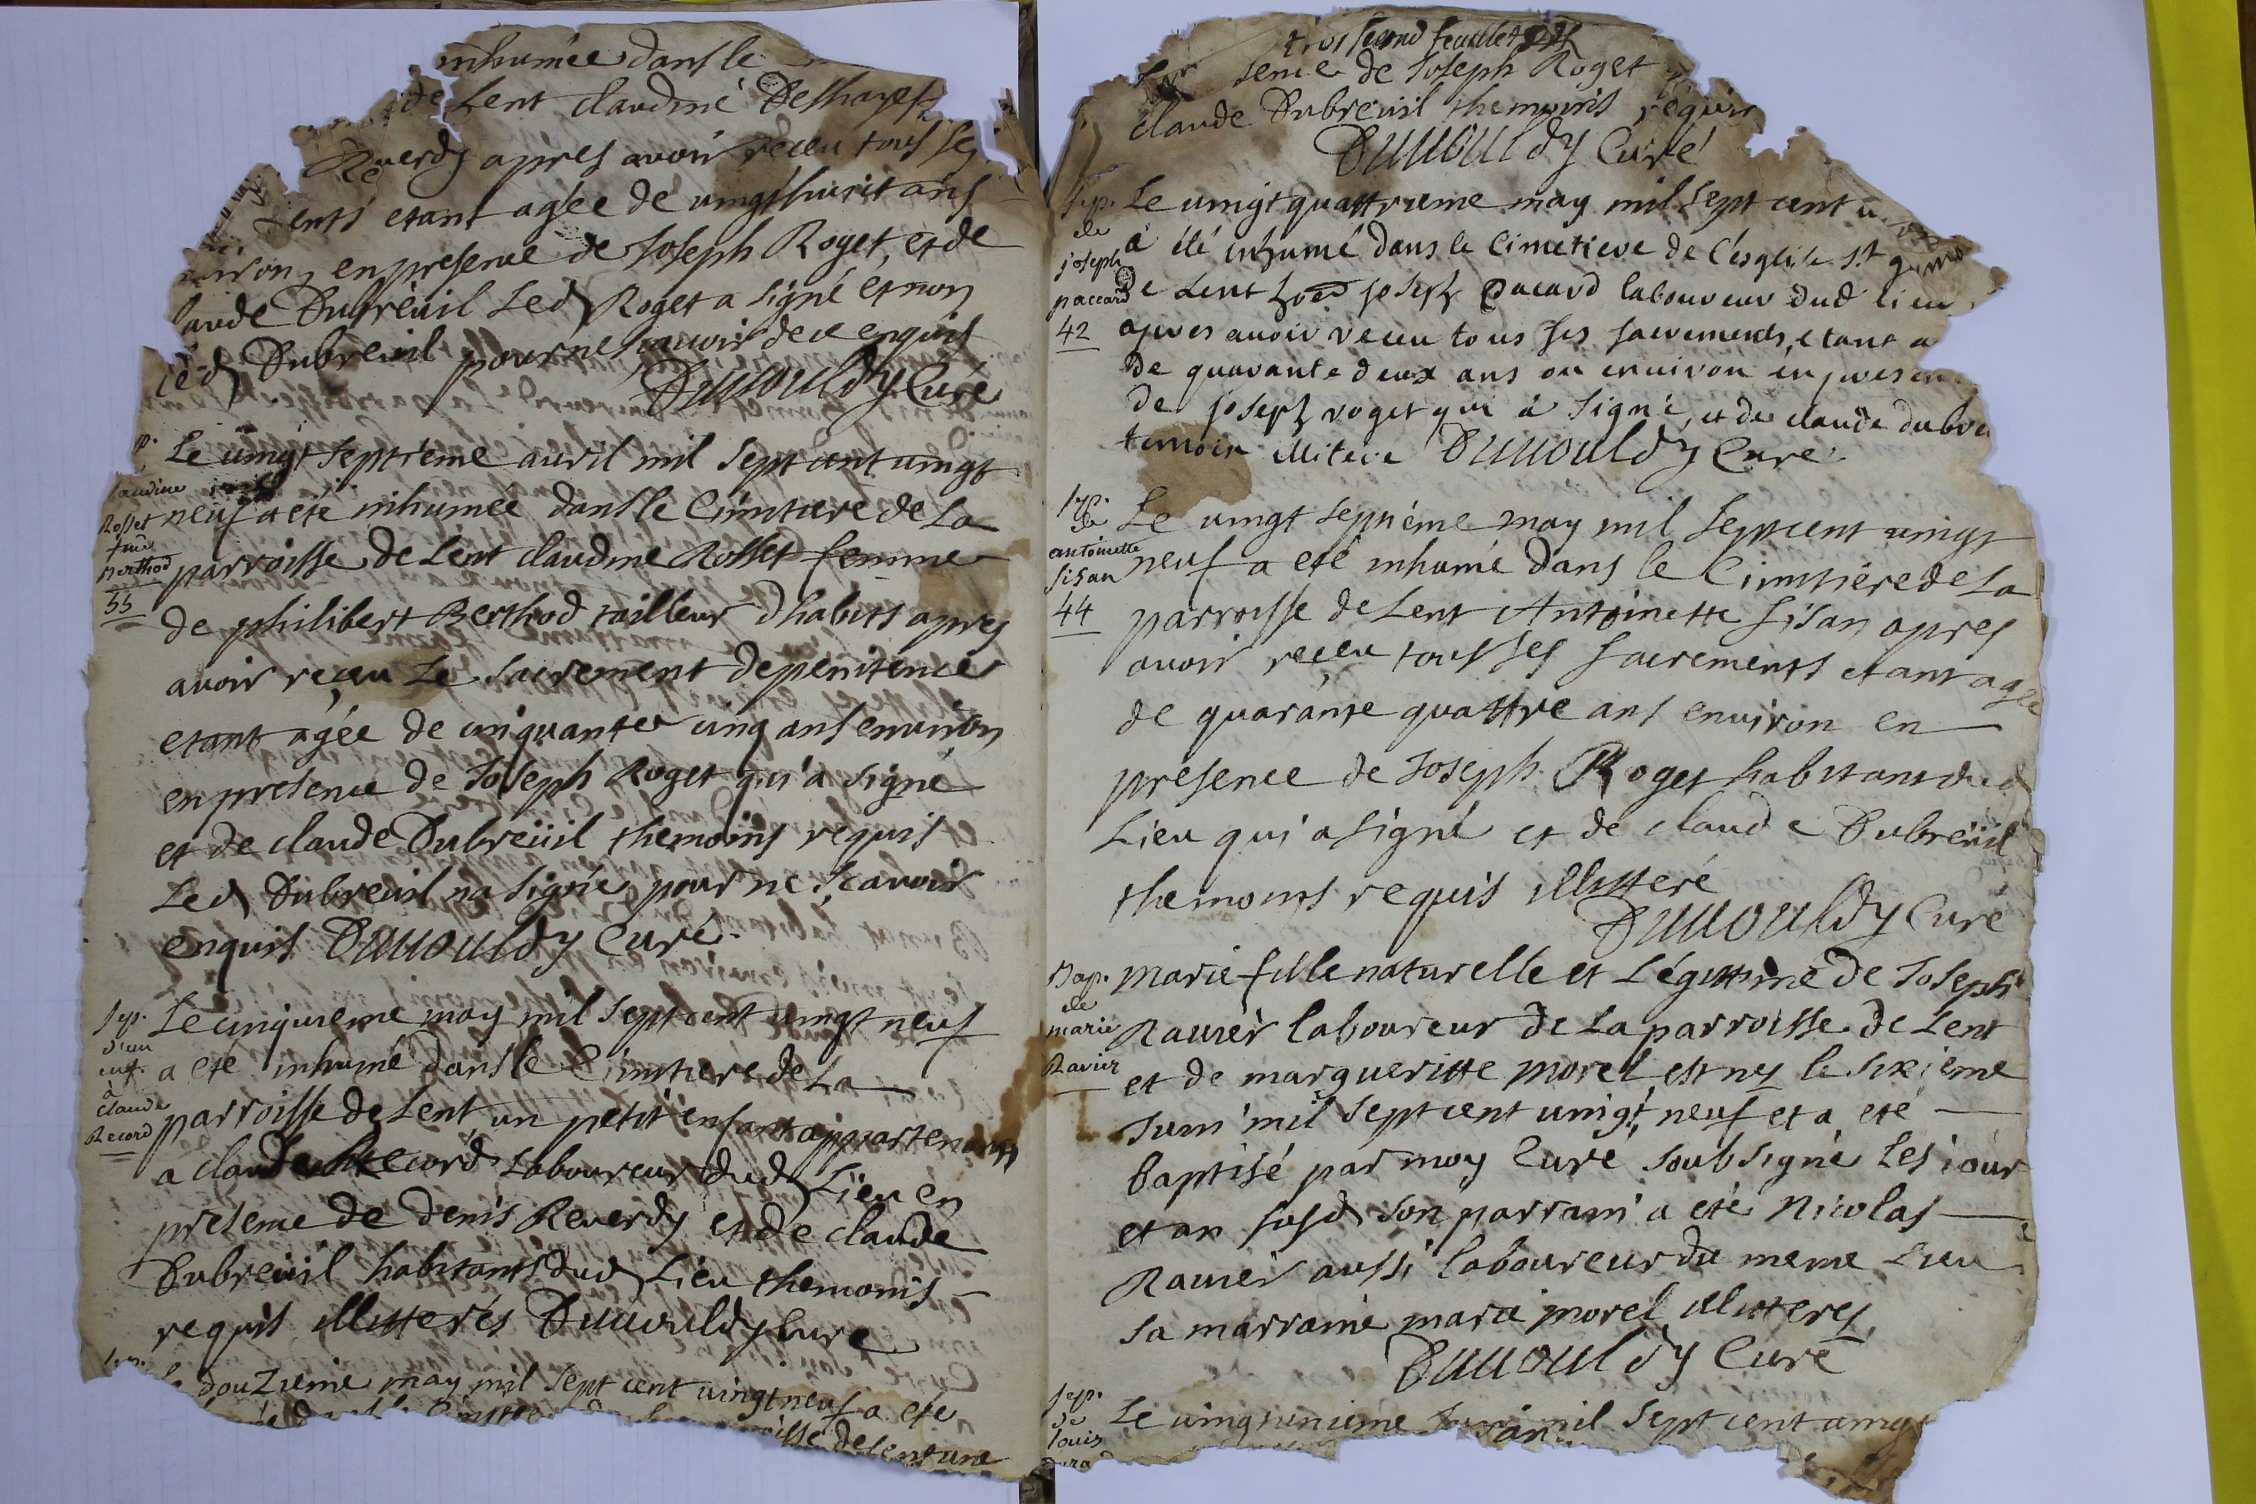 inhumée dans le
de Lent claudine Deshayes
Reverdy apres avoir reçeu tous ses
ents etant agée de vingt huit ans
environ, en presence de Joseph Roget, et de
laude Dubreüil Led Roget a signé et non
led Dubreuil pour ne sçavoir de ce enquis
Duuouldy Curé
p.
Le vingt septieme auril mil sept cent vingt
laudine
Rosset
fme
Berthod
55
neuf a eté inhumée dans le Cimitiere de La
parroisse de Lent claudine Rosset femme
de philibert Berthod tailleur d'habits apres
avoir reçeu Le sacrement de penitence
etant agée de cinquante cinq ans environ
en presence de Joseph Roget qui a signé
et de claude Dubreüil themoins requis
Led Dubreuil na signé pour ne sçavoir
enquis Duuouldy Curé
sep.
d'un
enf.
à
claude
Record
Le cinquieme may mil sept cent vingt neuf
a eté inhumé dans le Cimitiere de La
parroisse de Lent un petit enfant appartenant
a claude Record Laboureur dud Lieu en
presence de denis Reuerdy et de claude
Dubreüil habitants dud Lieu themoins
requis illitterés Duuouldy Cure
douzieme may mil sept cent vingt neuf a eté
parroisse de Lent une
second feuillet
sence de Joseph Roget
claude Dubreüil themoins requis
Duuouldy Curé
sep.
de
joseph
paccard
42
Le vingt quattrieme may mil sept cent
a élé inhumé dans le Cimetiere de l'église St
de Lent joseph Pacard laboureur dud lieu
apres avoir receu tous ses sacrements, etant a
de quarante deux ans ou environ en presen
de joseph roget qui a signé, et de claude dubre
temoin illitere Duuouldy Curé
sep.
de
antoinette
Sisan
44
Le vingt septieme may mil sept cent vingt
neuf a eté inhumé dans le Cimitiere de La
parroisse de Lent Antoinette Sisan apres
avoir reçeu tous ses sacrements etant agée
de quarante quattre ans environ en
présence de Joseph Roget habitant dud
Lieu qui a signé et de claude Dubreüil
themoins requis illitteré
Duuouldy Curé
Bap.
de
marie
Ravier
Marie fille naturelle et Légittime de Joseph
Rauier laboureur de La parroisse de Lent
et de margueritte morel est ny le sixieme
Juin mil sept cent vingt neuf et a eté
baptisé par moy Curé soubsigné Les jour
et an susd son parrain a eté Nicolas
Rauier aussi laboureur du meme Lieu
sa marraine marie morel illiteres
Duuouldy Curé
sep.
de
louis
Le vingt unieme Juin mil sept cent vingt